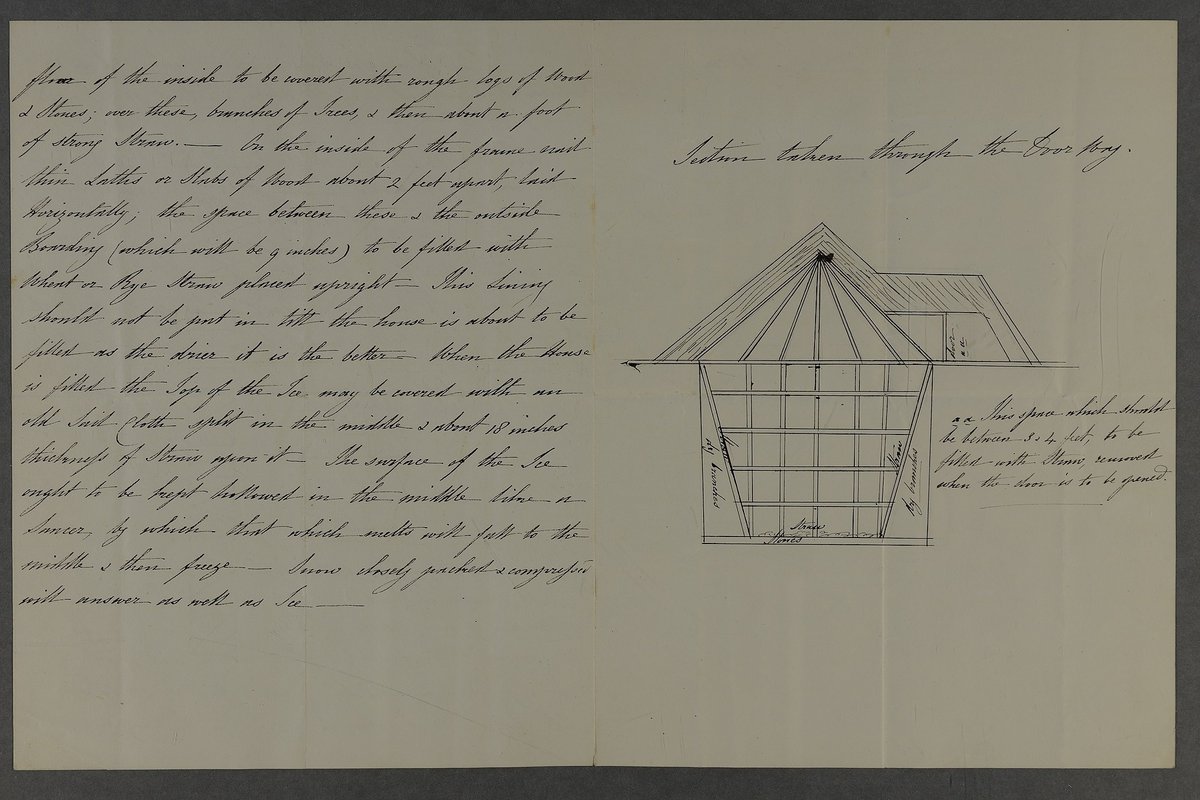 floor of the inside to be covered with rough logs of Wood
& Stones; over these, branches of Trees, & then about a foot
of strong Straw. — On the inside of the frame nail
thin Laths or Slabs of Wood about 2 feet apart, laid
Horizontally; the space between these & the outside
Boarding (which will be 9 inches) to be filled with
Wheat or Rye Straw placed upright — This Lining
should not be put in till the house is about to be
filled as the drier it is the better — When the House
is filled the Top of the Ice may be covered with an
old Sail Cloth split in the middle & about 18 inches
thickness of Straw upon it — The surface of the Ice
ought to be kept hollowed in the middle like a
Saucer, by which that which melts will fall to the
middle & then freeze — Snow closely packed & compress'd
will answer as well as Ice —
Section taken through the Door Way.
Door
a a
a a This space which should
be between 3 & 4 feet, to be
filled with Straw, removed
when the door is to be opened.
dry branches
Straw
Straw
dry branches
Straw
Stones